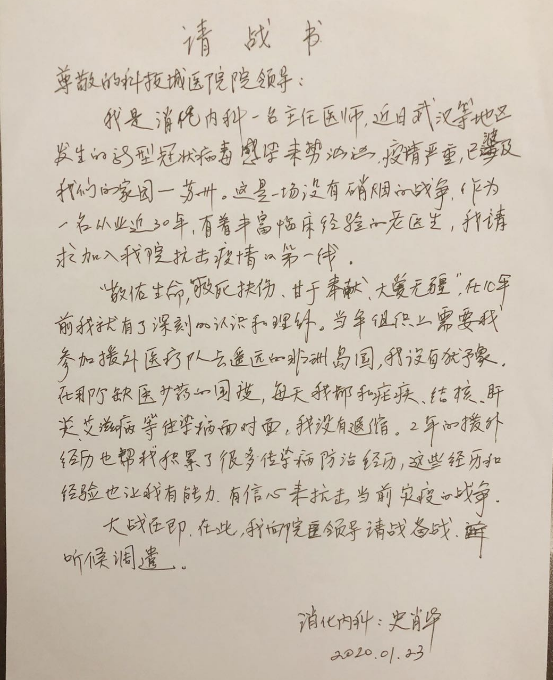 请战书
尊敬的科技城医院院领导：
我是消化内科一名主任医师，近日武汉等地区
发生的新型冠状病毒感染来势汹汹，疫情严重，已波及
我们的家园一苏州。这是一场没有硝烟的战争，作为
一名从业近30年，有着丰富临床经验的老医生，我请
求加入我院抗击疫情的第一线。
“敬佑生命，救死扶伤、甘于奉献、大爱无疆”，在10年
前我就有了深刻的认识和理解。当年组织上需要我
参加援外医疗队去遥远的非洲岛国，我没有犹予象。
在那个缺医少药的国度，每天我都和疟疾、结核、肝
炎、艾滋病等传染病面对面，我没有退缩。2年的援外
经历也帮我积累了很多传染病防治经历，这些经历和
经验也让我有能力、有信心来抗击当前灾疫的战争。
大战在即，在此，我向院领导请战备战、
听候调遣。
消化内科：史肖华
2020.01.23